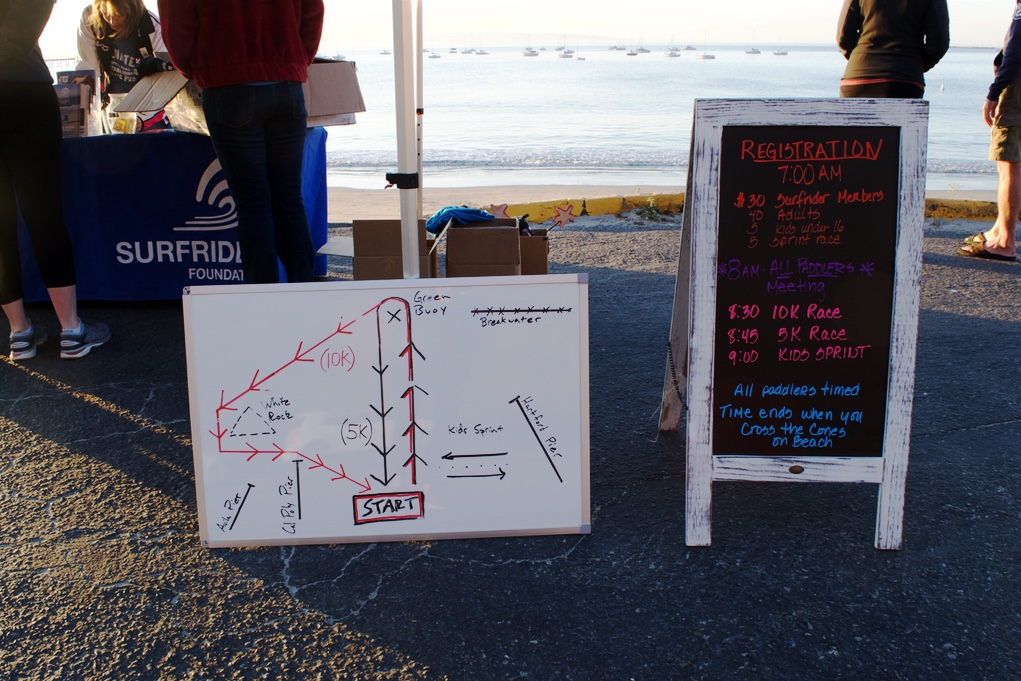 SURFRIDE
FOUNDAT
Green
Buoy
X
Breakwater
(10K)
White
Rock
(5K)
Kids Sprint
Hartford Pier
Avila Pier
Cal Poly Pier
START
REGISTRATION
7:00 AM
$30 Surfrider Members
40 Adults
5 kids under 16
5 Sprint race
*8AM - ALL PADDLERS *
Meeting
8:30 10K Race
8:45 5K Race
9:00 KIDS SPRINT
All paddlers timed
Time ends when you
Cross the Cones
on Beach